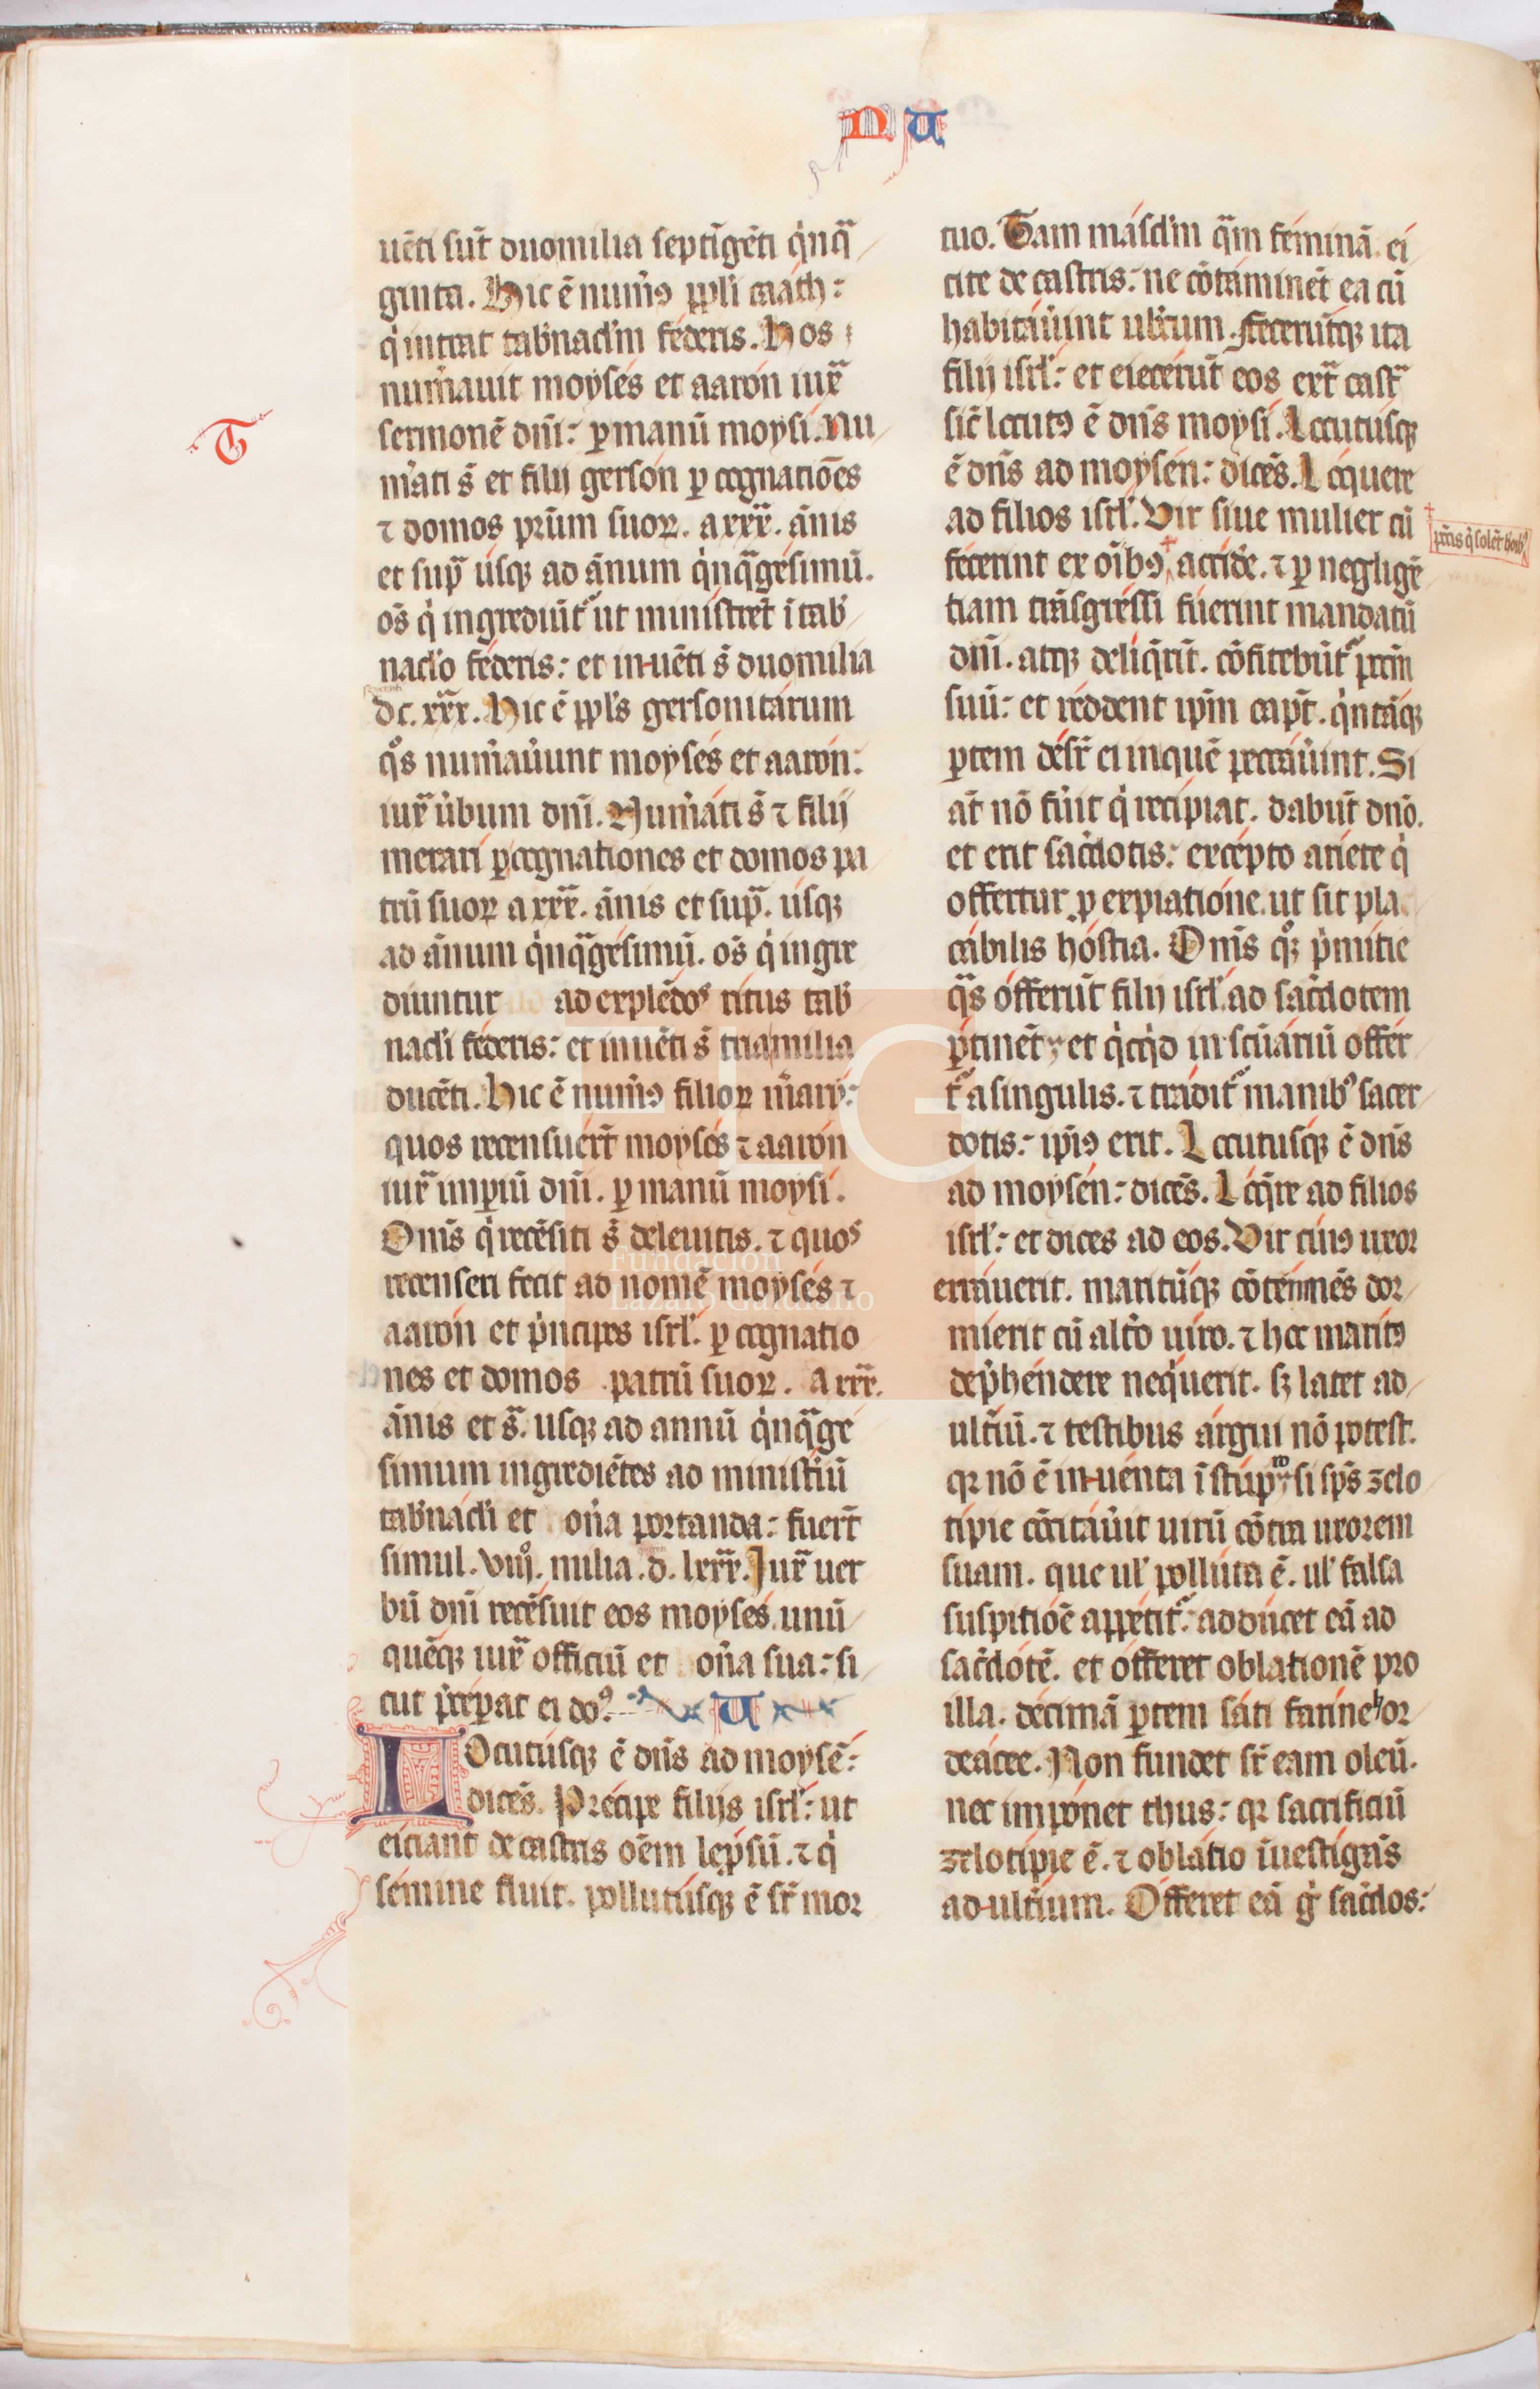 N U
T
uēti sūt duomilia septīgēti q̇nqᷓ
ginta. Hic ē num̄ꝰ ppłi caath:
q̇ intrat tab̄nac̄lm federis. Hos
num̄auit moyses et aaron iuxᷓ
sermonē dn̄i: ꝑ manū moysi. Nu
m̄ati s̄ et filij gerson ꝑ cognatiōes
⁊ domos pr̄um suoꝝ. a xxx. ānis
et supᷓ usqꝫ ad ānum q̇nqᷓgesimū.
os̄ q̇ ingrediūtᷣ ut ministrēt ī tab̄
nac̄lo federis: et inuēti s̄ duomilia
dc. xxx. Hic ē ppłs gersonitarum
qͦs num̄au̇unt moyses et aaron:
iuxᷓ u̇bum dn̄i. Num̄ati s̄ ⁊ filij
merari ꝑ cognationes et domos pa
trū suoꝝ a xxx. ānis et supᷓ. usqꝫ
ad ānum q̇nqᷓgesimū. os̄ q̇ ingre
diuntur ad explēdos ritus tab̄
nac̄li federis: et inuēti s̄ triamilia
ducēti. Hic ē num̄ꝰ filioꝝ m̄ari:
quos recensuert̄ moyses ⁊ aaron
iuxᷓ imꝑiū dn̄i. ꝑ manū moysi.
Om̄s q̇ recēsiti s̄ de leuitis. ⁊ quos
recenseri fecit ad nomē moyses ⁊
aaron et ṗncipes isrł. ꝑ cognatio
nes et domos patrū suoꝝ. a xxx.
ānis et sᷓ. usqꝫ ad annū q̇nqᷓge
simum ingrediētes ad minisṫiū
tab̄nac̄li et on̄a portanda: fuert̄
simul. viijͦ. milia. d. lxxx. Iuxᷓ uer
bū dn̄i recēsuit eos moyses. unū
quēqꝫ iuxᷓ officiū et on̄a sua: si
cut p̄ceꝑat ei do᷒. U
LOcutusqꝫ ē dn̄s ad moysē:
dicēs. Precipe filijs isrł: ut
eiciant de castris oēm lep̄sū. ⁊ q̇
semine fluit. pollutusqꝫ ē sr̄ mor
tuo. Tam masc̄lm qᷓm feminā. ei
cite de castris: ne cōtaminēt ea cū
habitau̇unt ub̄cum. Fecerūtqꝫ ita
filij isrł: et eiecerūt eos ext̄ᷓ castᷓ
sic̄ locutꝰ ē dn̄s moysi. Locutusqꝫ
ē dn̄s ad moysen: dicēs. Loquere
ad filios isrł. Vir siue mulier cū
pcc̄is q̇ solēt hoib᷒
fecerint ex oīb᷒ accide̅. ⁊ ꝑ negligē
tiam trāsgressi fuerint mandatū
dn̄i. atqꝫ deliq̇rīt. cōfitebūtᷣ pcc̄m
suū: et reddent ip̄m capt̄. q̇ntāqꝫ
ꝑtem desr̄ ei inquē peccau̇int. Si
at̄ nō fu̇it q̇ recipiat. dabūt dn̄o.
et erit sac̄dotis: excepto ariete q̇
offertur ꝓ expiatione. ut sit pla
cabilis hostia. Om̄s qͦꝫ ṗmitie
qᷓs offerūt filij isrł. ad sac̄dotem
ꝑtinēt: et q̇cq̇d in sc̄uariū offer
tᷣ a singulis. ⁊ tradit̄ᷣ manib᷒ sacer
dotis: ip̄iꝰ erit. Locutusqꝫ ē dn̄s
ad moysen: dicēs. Loq̄re ad filios
isrł: et dices ad eos. Vir cuiꝰ uxor
errauerit. maritūqꝫ cōtemnēs dor
mierit cū alt̄o uiro. ⁊ hoc maritꝰ
dep̄hendere neq̇uerit. sꝫ latet ad
ult̄iū. ⁊ testibus argui nō potest.
qꝛ nō ē inuenta ī stupro: si sp̄s zelo
tipie cōcitau̇it uirū cōtra uxorem
suam. que ul̄ polluta ē. ul̄ falsa
suspitiōe appetitᷣ: adducet eā ad
sac̄dotē. et offeret oblationē pro
illa. decimā ꝑtem sati farine hor
deacee. Non fundet sr̄ eam oleū.
nec imponet thus: qꝛ sacrificiū
zelotipie ē. ⁊ oblatio īuestigās
adult̄ium. Offeret eā g̊ sac̄dos:
Fundación
Lázaro Galdiano